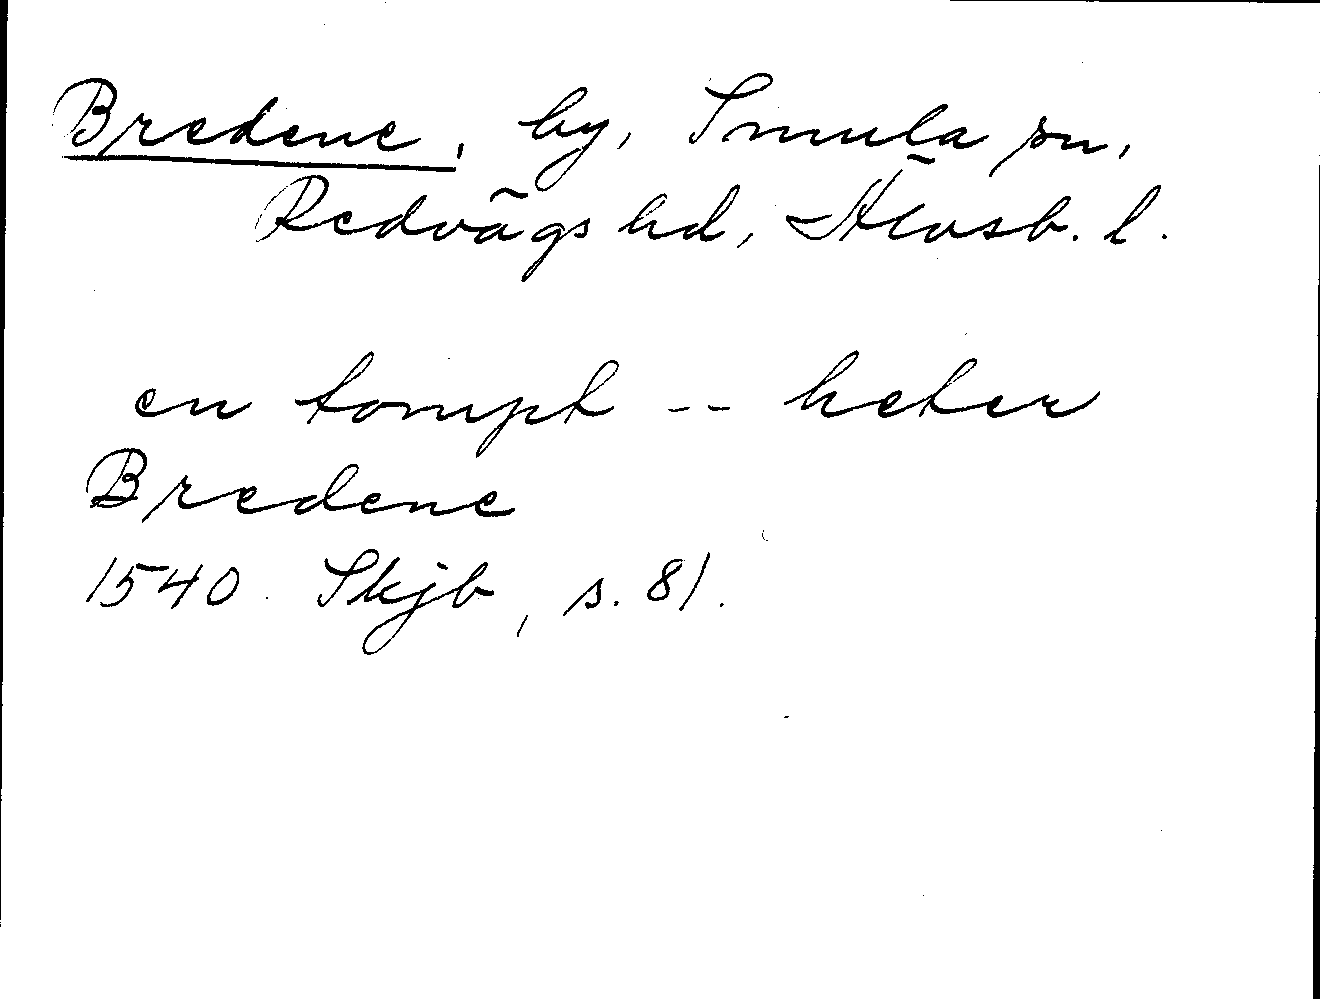 Bredene, by, Smula sn,
Redvägs hd, Älvsb. l.
en tompt -- heter
Bredene
1540 Skjb, s. 81.